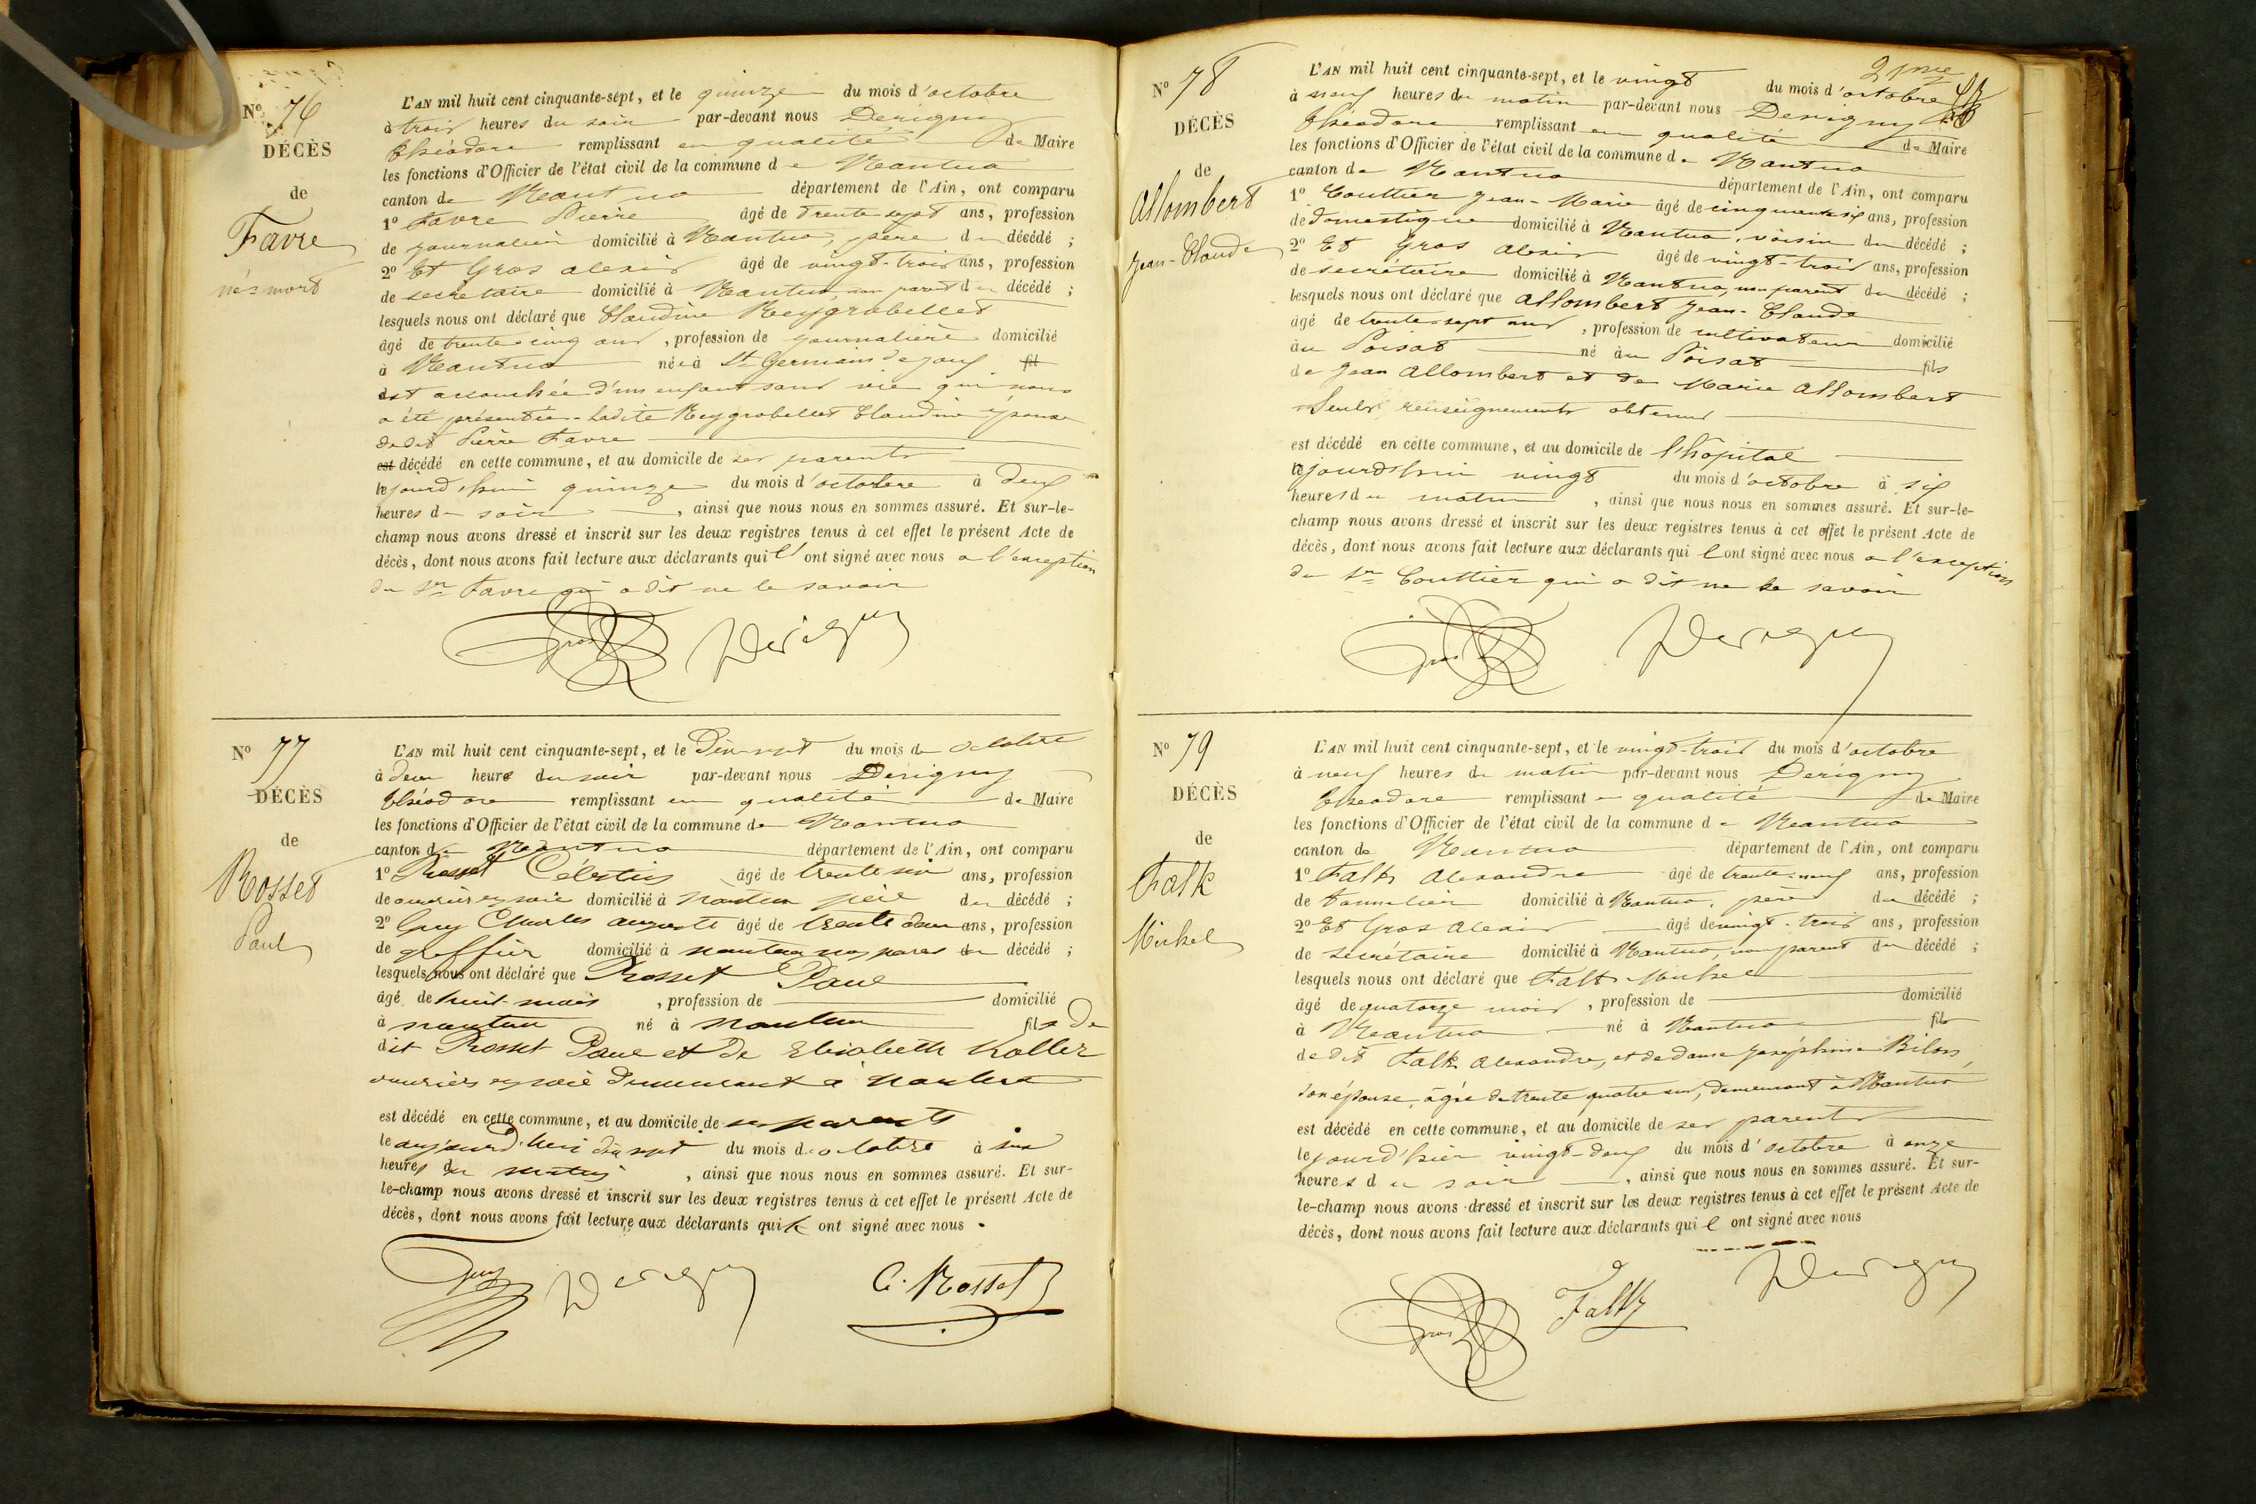 Nº 76
DÉCÈS
de
Favre
né-mort
L'AN mil huit cent cinquante-sept, et le quinze du mois d'octobre
à trois heures du soir par-devant nous Derigny
Théodore remplissant en qualité de Maire
les fonctions d'Officier de l'état civil de la commune de Nantua
canton de Nantua département de l'Ain, ont comparu
1º Favre Pierre âgé de trente sept ans, profession
de journalier domicilié à Nantua, père du décédé ;
2º Et Gros alexis âgé de vingt-trois ans, profession
de secrétaire domicilié à Nantua, non parent du décédé ;
lesquels nous ont déclaré que Claudine Reygrobellet
âgé de trente cinq ans, profession de journalière domicilié
à Nantua née à St Germain de joux fil
est accouchée d'un enfant sans vie qui nous
a été présentée. Ladite Reygrobellet Claudine épouse
dudit Pierre Favre
est décédé en cette commune, et au domicile de ses parents
lejourd'hui quinze du mois d'octobre à deux
heures du soir, ainsi que nous nous en sommes assuré. Et sur-le-
champ nous avons dressé et inscrit sur les deux registres tenus à cet effet le présent Acte de
décès, dont nous avons fait lecture aux déclarants qui l'ont signé avec nous a l'exception
du Sr Favre qui a dit ne le savoir
Gros Derigny
Nº 77
DÉCÈS
de
Rosset
Paul
L'AN mil huit cent cinquante-sept, et le Dix-sept du mois de octobre
à deux heure du soir par-devant nous Derigny
Théodore remplissant en qualité de Maire
les fonctions d'Officier de l'état civil de la commune de Nantua
canton de Nantua département de l'Ain, ont comparu
1º Rosset Célestin âgé de trente six ans, profession
de ouvrier en soie domicilié à Nantua père du décédé ;
2º Guy Charles auguste âgé de trente deux ans, profession
de greffier domicilié à nantua non parent du décédé ;
lesquels nous ont déclaré que Rosset Paul
âgé de huit mois, profession de domicilié
à nantua né à nantua fils de
dit Rosset Paul et de Elisabeth Koller
ouvriers en soie demeurant à Nantua
est décédé en cette commune, et au domicile de ses parents
le aujourd'hui dix sept du mois de octobre à six
heures du matin, ainsi que nous nous en sommes assuré. Et sur-
le-champ nous avons dressé et inscrit sur les deux registres tenus à cet effet le présent Acte de
décès, dont nous avons fait lecture aux déclarants qui ont signé avec nous.
Guy Derigny C. Rosset
2me
Nº 78
DÉCÈS
de
Allombert
Jean-Claude
L'AN mil huit cent cinquante-sept, et le vingt du mois d'octobre
à neuf heures du matin par-devant nous Derigny
Théodore remplissant en qualité de Maire
les fonctions d'Officier de l'état civil de la commune de Nantua
canton de Nantua département de l'Ain, ont comparu
1º Couttier Jean-Marie âgé de cinquante six ans, profession
de domestique domicilié à Nantua, voisin du décédé ;
2º Et Gros alexis âgé de vingt-trois ans, profession
de secrétaire domicilié à Nantua, non parent du décédé ;
lesquels nous ont déclaré que Allombert Jean-Claude
âgé de trente-sept ans, profession de cultivateur domicilié
àu Poisat né àu Poisat fils
de Jean Allombert et de Marie Allombert
Seuls renseignements obtenus
est décédé en cette commune, et au domicile de l'hôpital
lejourd'hui vingt du mois d'octobre à six
heures du matin, ainsi que nous nous en sommes assuré. Et sur-le-
champ nous avons dressé et inscrit sur les deux registres tenus à cet effet le présent Acte de
décès, dont nous avons fait lecture aux déclarants qui l'ont signé avec nous a l'exception
du Sr Couttier qui a dit ne le savoir
Gros Derigny
Nº 79
DÉCÈS
de
Falk
Michel
L'AN mil huit cent cinquante-sept, et le vingt-trois du mois d'octobre
à neuf heures du matin par-devant nous Derigny
Théodore remplissant en qualité de Maire
les fonctions d'Officier de l'état civil de la commune de Nantua
canton de Nantua département de l'Ain, ont comparu
1º Falk Alexandre âgé de trente-neuf ans, profession
de tonnelier domicilié à Nantua, père du décédé ;
2º Et Gros Alexis âgé de vingt-trois ans, profession
de secrétaire domicilié à Nantua, non parent du décédé ;
lesquels nous ont déclaré que Falk Michel
âgé de quatorze mois, profession de domicilié
à Nantua né à Nantua fils
de dit Falk Alexandre, et de dame Joséphine Bilon,
son épouse, âgée de trente quatre ans, demeurant à Nantua
est décédé en cette commune, et au domicile de ses parents
lejourd'hier vingt-deux du mois d'octobre à onze
heures du soir, ainsi que nous nous en sommes assuré. Et sur-
le-champ nous avons dressé et inscrit sur les deux registres tenus à cet effet le présent Acte de
décès, dont nous avons fait lecture aux déclarants qui l ont signé avec nous
Gros Falk Derigny